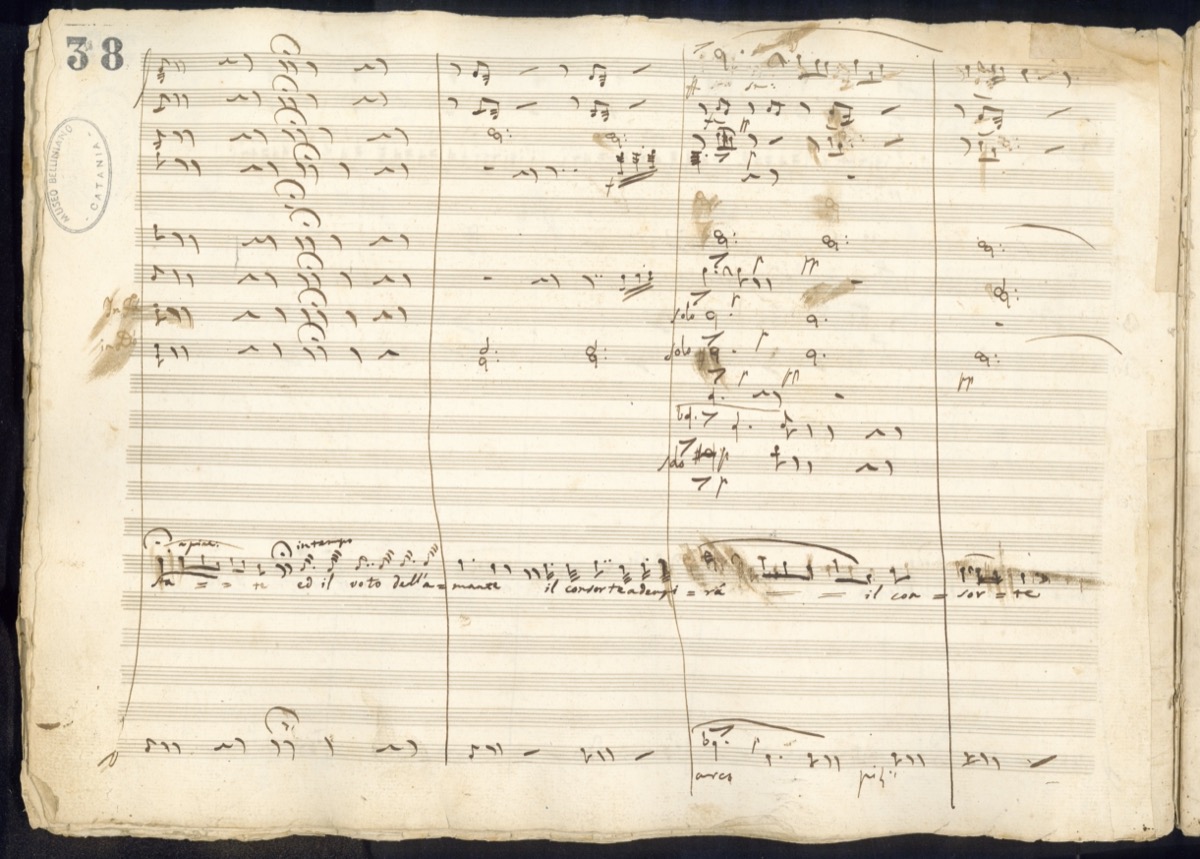 38
MUSEO BELLINIANO
CATANIA
solo
solo
solo
a piac. in tempo
sta = = te ed il voto dell'a = mante il consorte adempi = rà = = il con = sor = te
arco